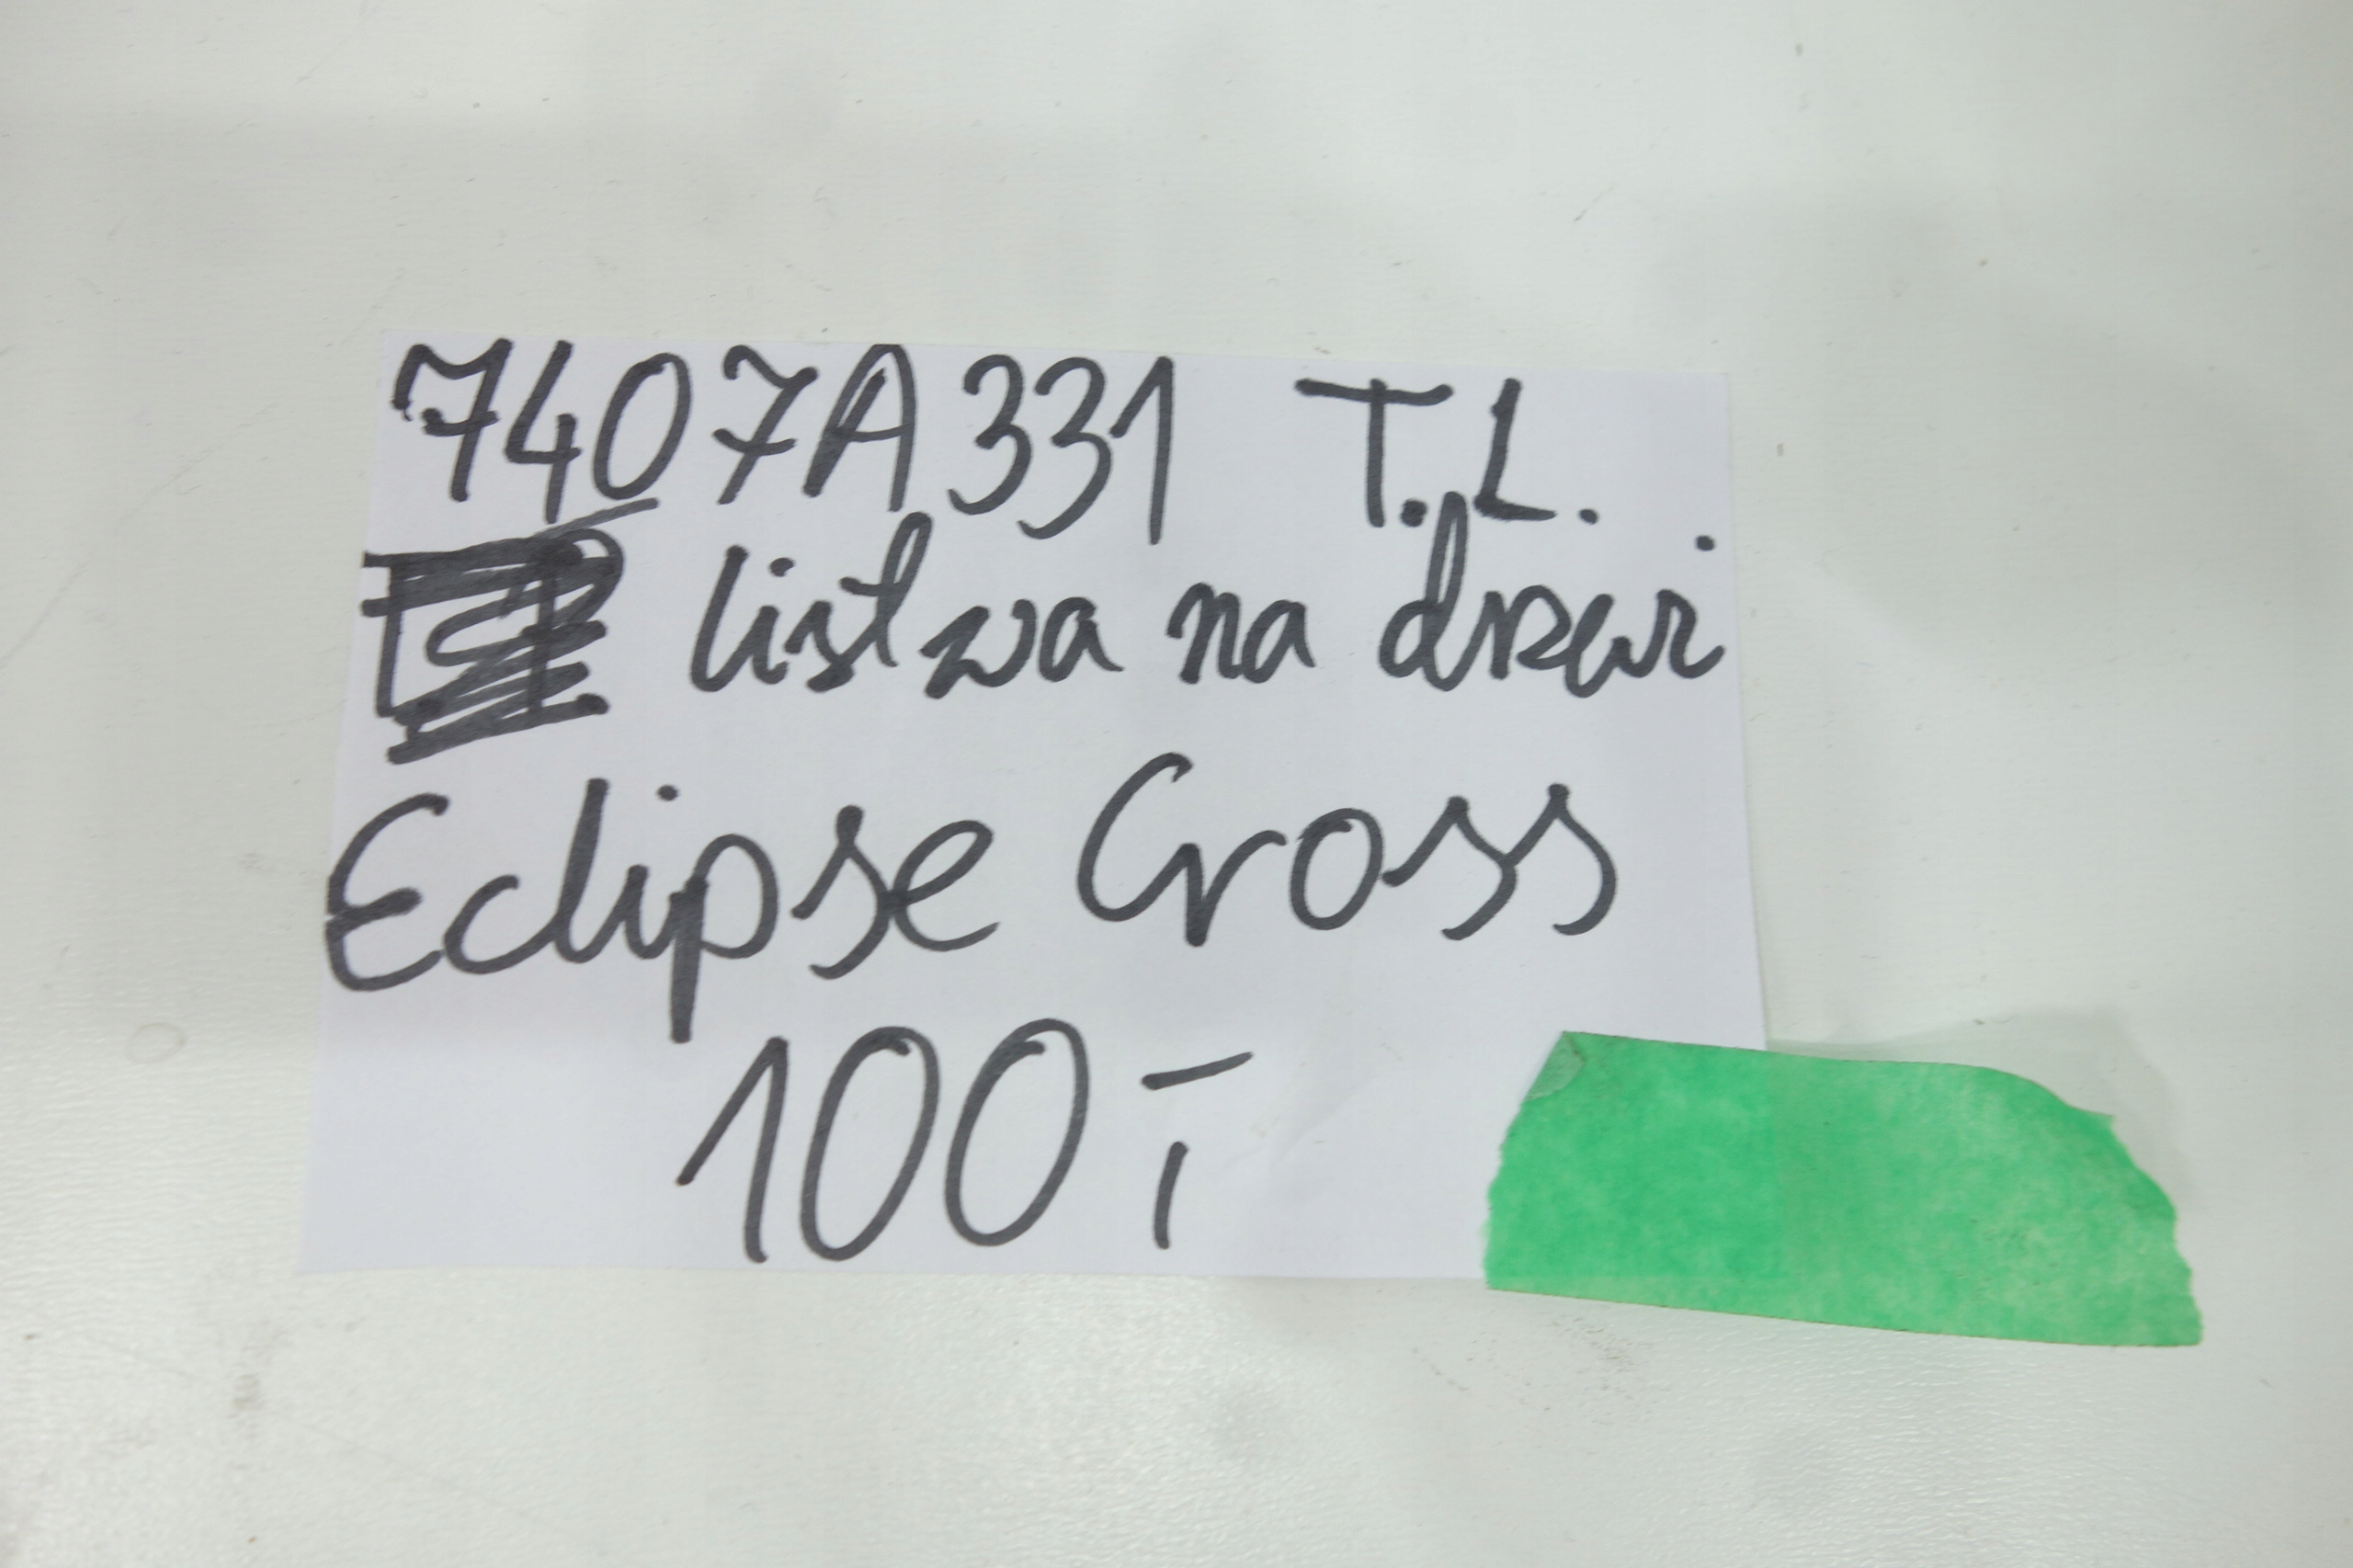 7407A331 T.L.
listwa na drzwi
Eclipse Cross
100,-